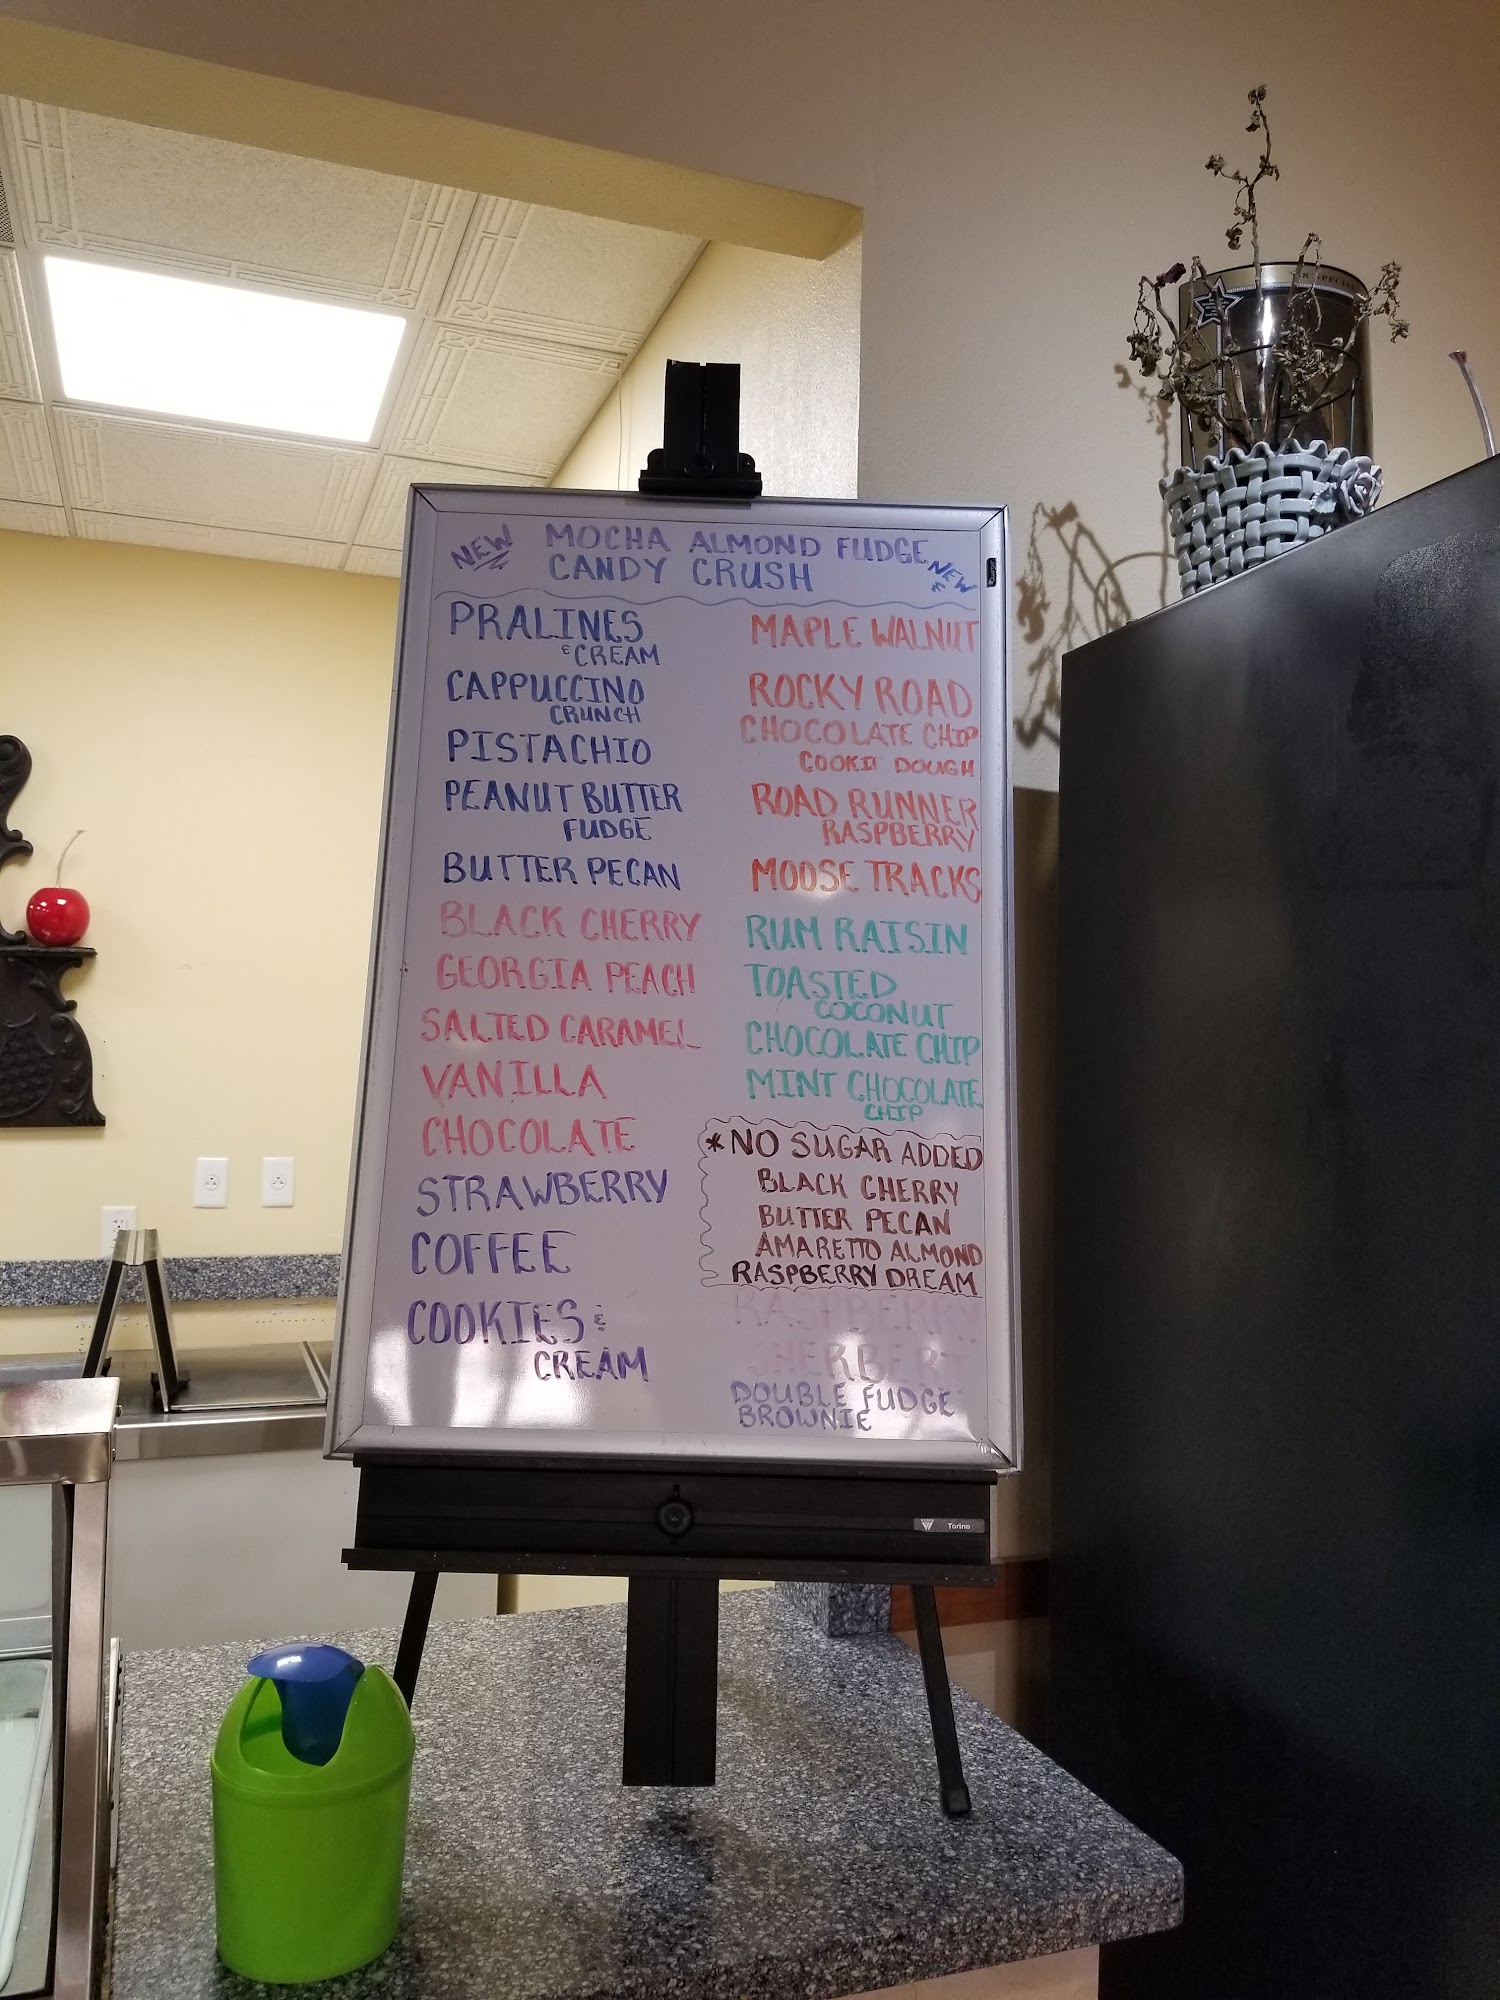 NEW MOCHA ALMOND FUDGE NEW
CANDY CRUSH
PRALINES
& CREAM
CAPPUCCINO
CRUNCH
PISTACHIO
PEANUT BUTTER
FUDGE
BUTTER PECAN
BLACK CHERRY
GEORGIA PEACH
SALTED CARAMEL
VANILLA
CHOCOLATE
STRAWBERRY
COFFEE
COOKIES &
CREAM
MAPLE WALNUT
ROCKY ROAD
CHOCOLATE CHIP
COOKIE DOUGH
ROAD RUNNER
RASPBERRY
MOOSE TRACKS
RUM RAISIN
TOASTED
COCONUT
CHOCOLATE CHIP
MINT CHOCOLATE
CHIP
*NO SUGAR ADDED
BLACK CHERRY
BUTTER PECAN
AMARETTO ALMOND
RASPBERRY DREAM
RASPBERRY
SHERBERT
DOUBLE FUDGE
BROWNIE
Torino